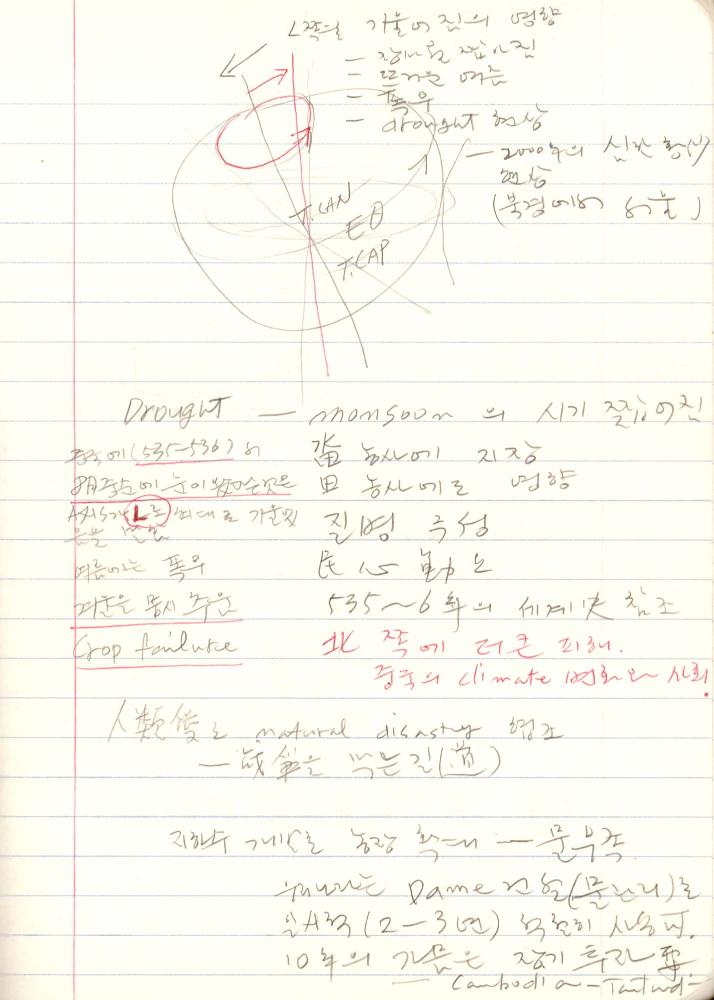 L쪽을 기울어짐의 영향
— 장마로 짧아짐
— 뜨거운 여름
— 폭우
— drought 현상
— 2000年의 심한 황사
현상
(북경에서 서울)
T.CAN
EQ
T.CAP
Drought — monsoon의 시기 짧아진
중국에 (535–536)에
畓 농사에 지장
8月 중순에 눈이 왔다는것은
田 농사에도 영향
Axis가 L로 최대로 기울었
음을 말함
질병 극성
여름에는 폭우
民心 動요
겨울은 몹시 추운
535~6年의 세계史 참조
Crop failure
北 쪽에 더 큰 피해.
중국의 climate 변화와 사회.
人類 natural 강조
— 을 막는 길(道)
지하수 개발로 농장 확대 — 물부족
우리나라는 Dame 건설(물난리)로
일시적 (2–3년)
10年의 가뭄은 장기 투자 要
— Cambodia –